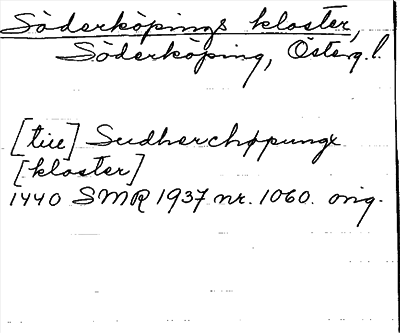 Söderköpings kloster,
Söderköping, Österg.l.
[tiil] Sudherchøpungx
[kloster]
1440 SMR 1937 nr. 1060. orig.